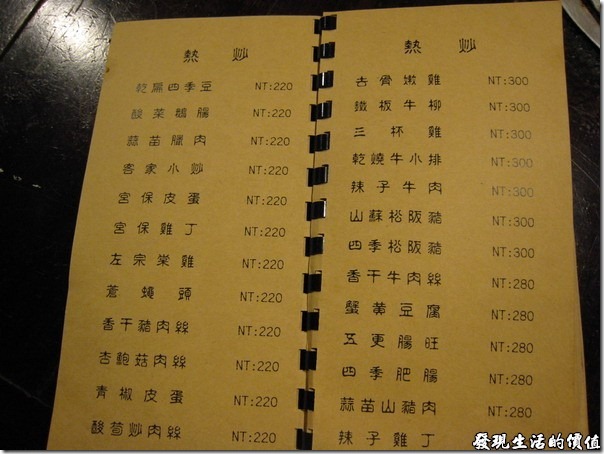 熱炒
乾扁四季豆 NT:220
酸菜鵝腸 NT:220
蒜苗臘肉 NT:220
客家小炒 NT:220
宮保皮蛋 NT:220
宮保雞丁 NT:220
左宗棠雞 NT:220
蒼蠅頭 NT:220
香干豬肉絲 NT:220
杏鮑菇肉絲 NT:220
青椒皮蛋 NT:220
酸筍炒肉絲 NT:220
熱炒
去骨嫩雞 NT:300
鐵板牛柳 NT:300
三杯雞 NT:300
乾燒牛小排 NT:300
辣子牛肉 NT:300
山蘇松阪豬 NT:300
四季松阪豬 NT:300
香干牛肉絲 NT:280
蟹黃豆腐 NT:280
五更腸旺 NT:280
四季肥腸 NT:280
蒜苗山豬肉 NT:280
辣子雞丁 NT:280
發現生活的價值